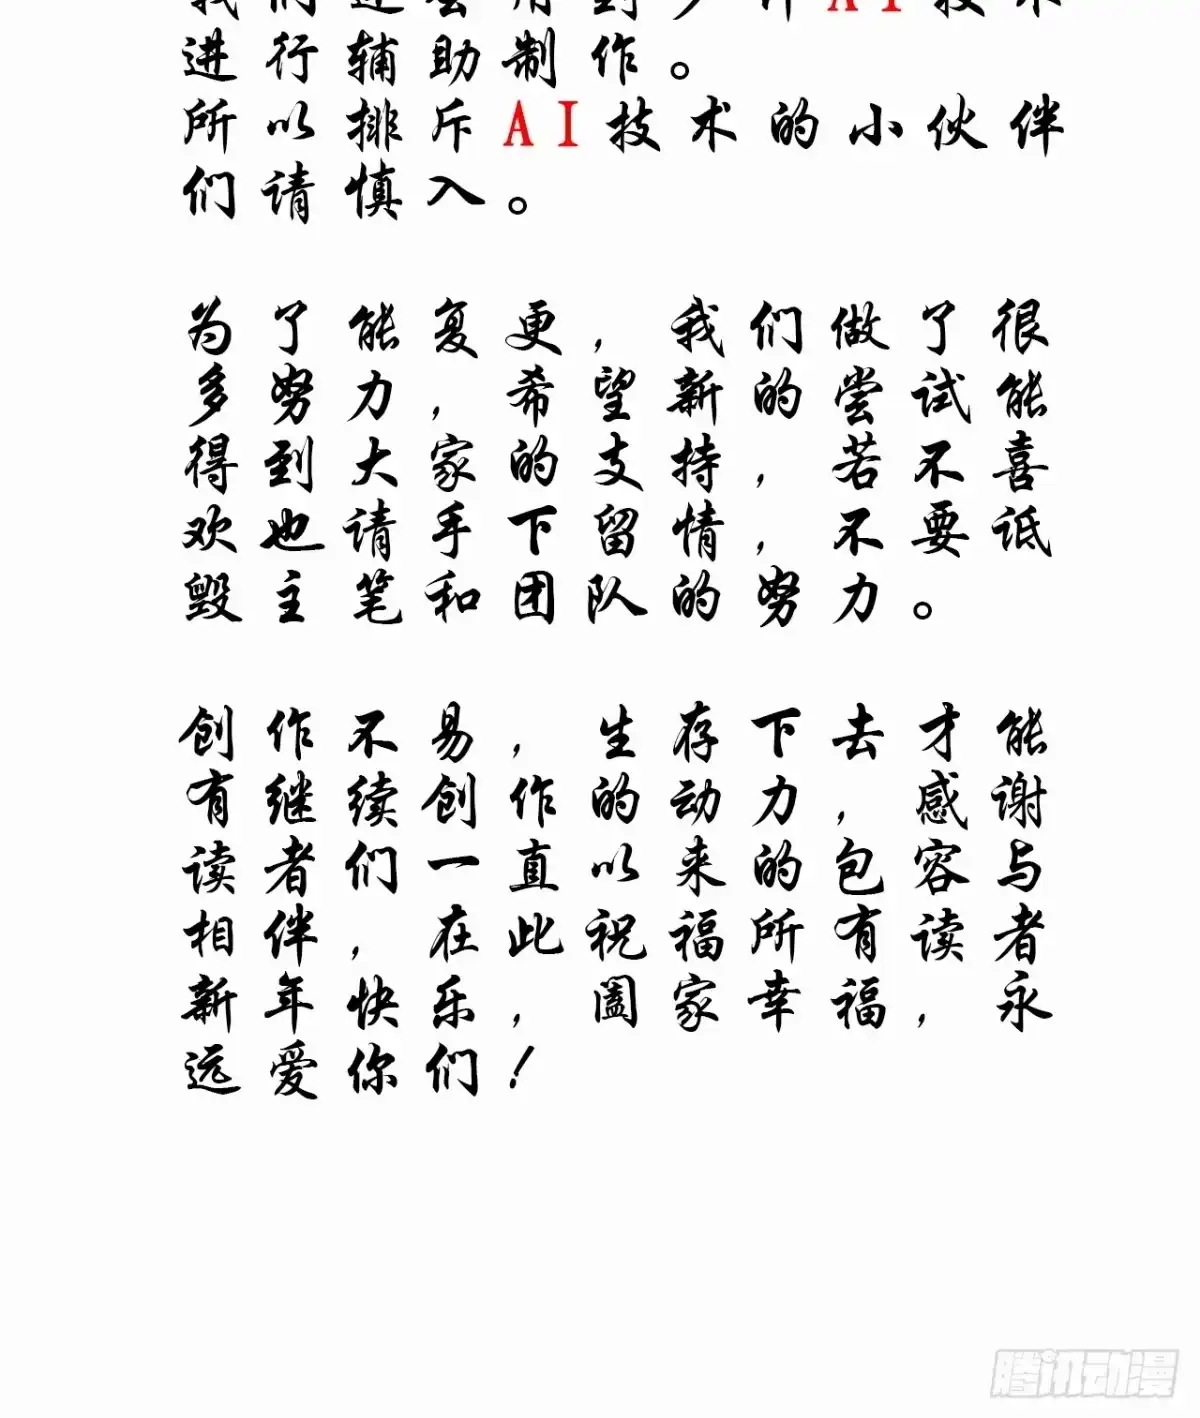 我们还会用到多种AI技术
进行辅助制作。
所以排斥AI技术的小伙伴
们请慎入。
为了能复更，我们做了很
多努力，希望新的尝试能
得到大家的支持，若不喜
欢也请手下留情，不要诋
毁主笔和团队的努力。
创作不易，生存下去才能
有继续创作的动力，感谢
读者们一直以来的包容与
相伴，在此祝福所有读者
新年快乐，阖家幸福，永
远爱你们！
腾讯动漫